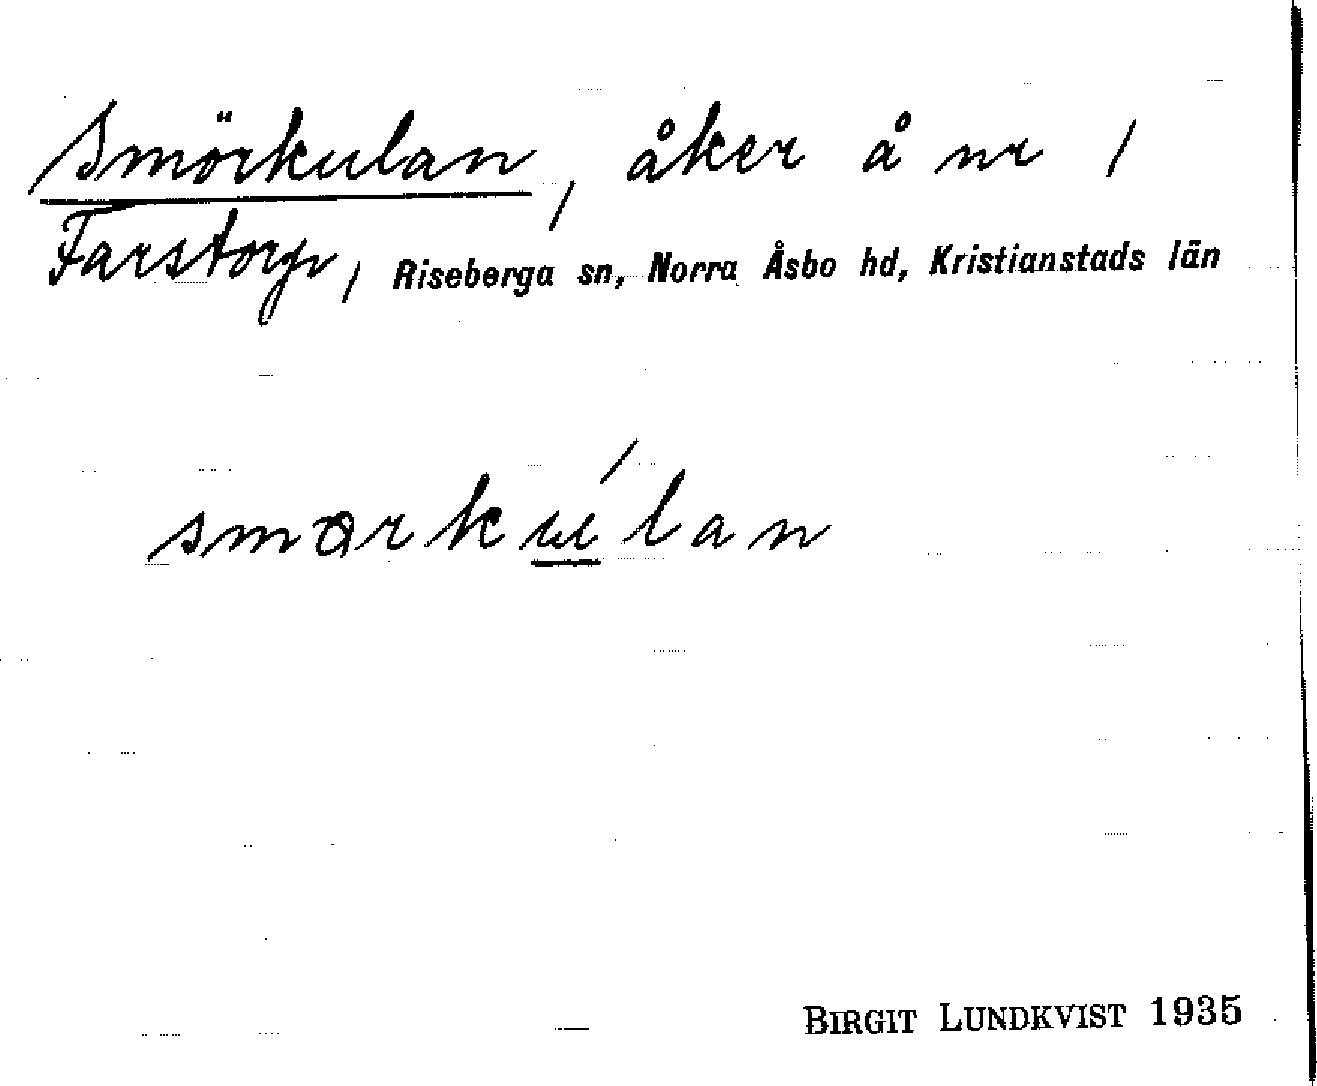 Smörkulan, åker å nr 1
Farstorp, Riseberga sn, Norra Åsbo hd, Kristianstads län
BIRGIT LUNDKVIST 1935